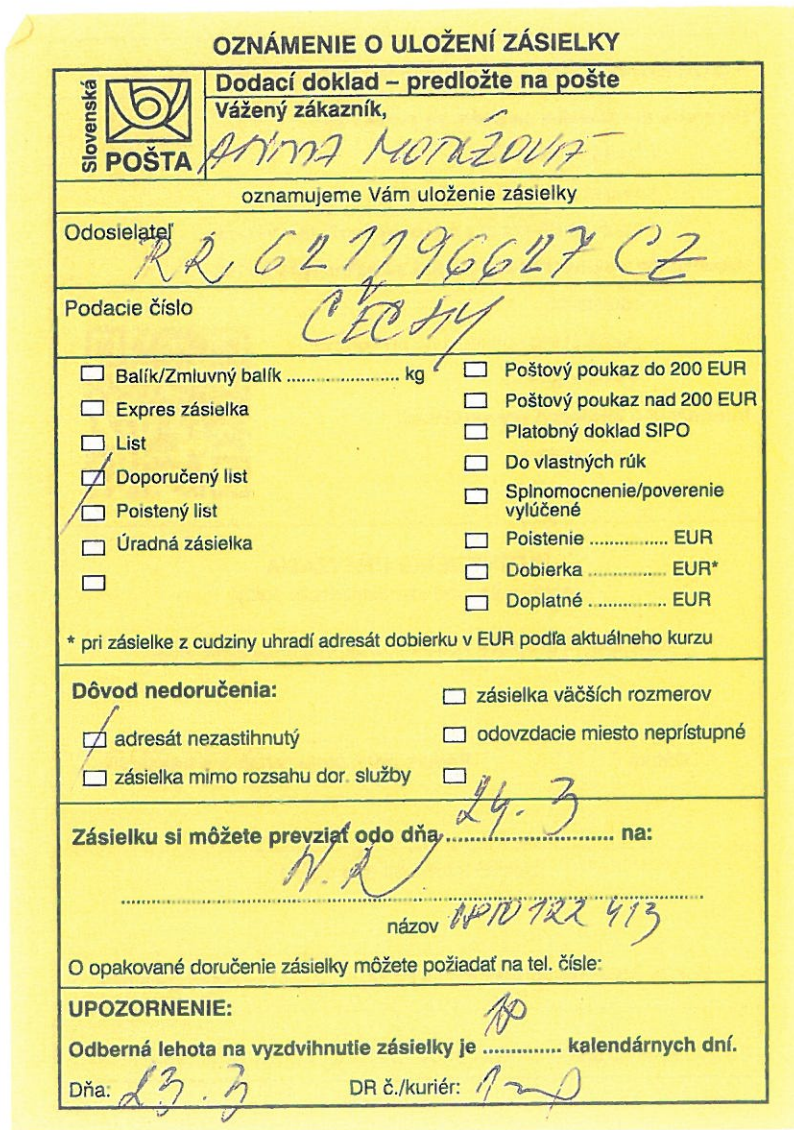 OZNÁMENIE O ULOŽENÍ ZÁSIELKY
Slovenská
POŠTA
Dodací doklad – predložte na pošte
Vážený zákazník,
oznamujeme Vám uloženie zásielky
Odosielateľ
RR 621196627 CZ
Podacie číslo
ČECHY
Balík/Zmluvný balík ...................... kg
Expres zásielka
List
Doporučený list
Poistený list
Úradná zásielka
Poštový poukaz do 200 EUR
Poštový poukaz nad 200 EUR
Platobný doklad SIPO
Do vlastných rúk
Splnomocnenie/poverenie
vylúčené
Poistenie ............... EUR
Dobierka ............... EUR*
Doplatné ............... EUR
* pri zásielke z cudziny uhradí adresát dobierku v EUR podľa aktuálneho kurzu
Dôvod nedoručenia:
adresát nezastihnutý
zásielka mimo rozsahu dor. služby
zásielka väčších rozmerov
odovzdacie miesto neprístupné
Zásielku si môžete prevziať odo dňa 24. 3 na:
N.R
názov 122 413
O opakované doručenie zásielky môžete požiadať na tel. čísle:
UPOZORNENIE:
Odberná lehota na vyzdvihnutie zásielky je ............. kalendárnych dní.
Dňa: 23. 3 DR č./kuriér: